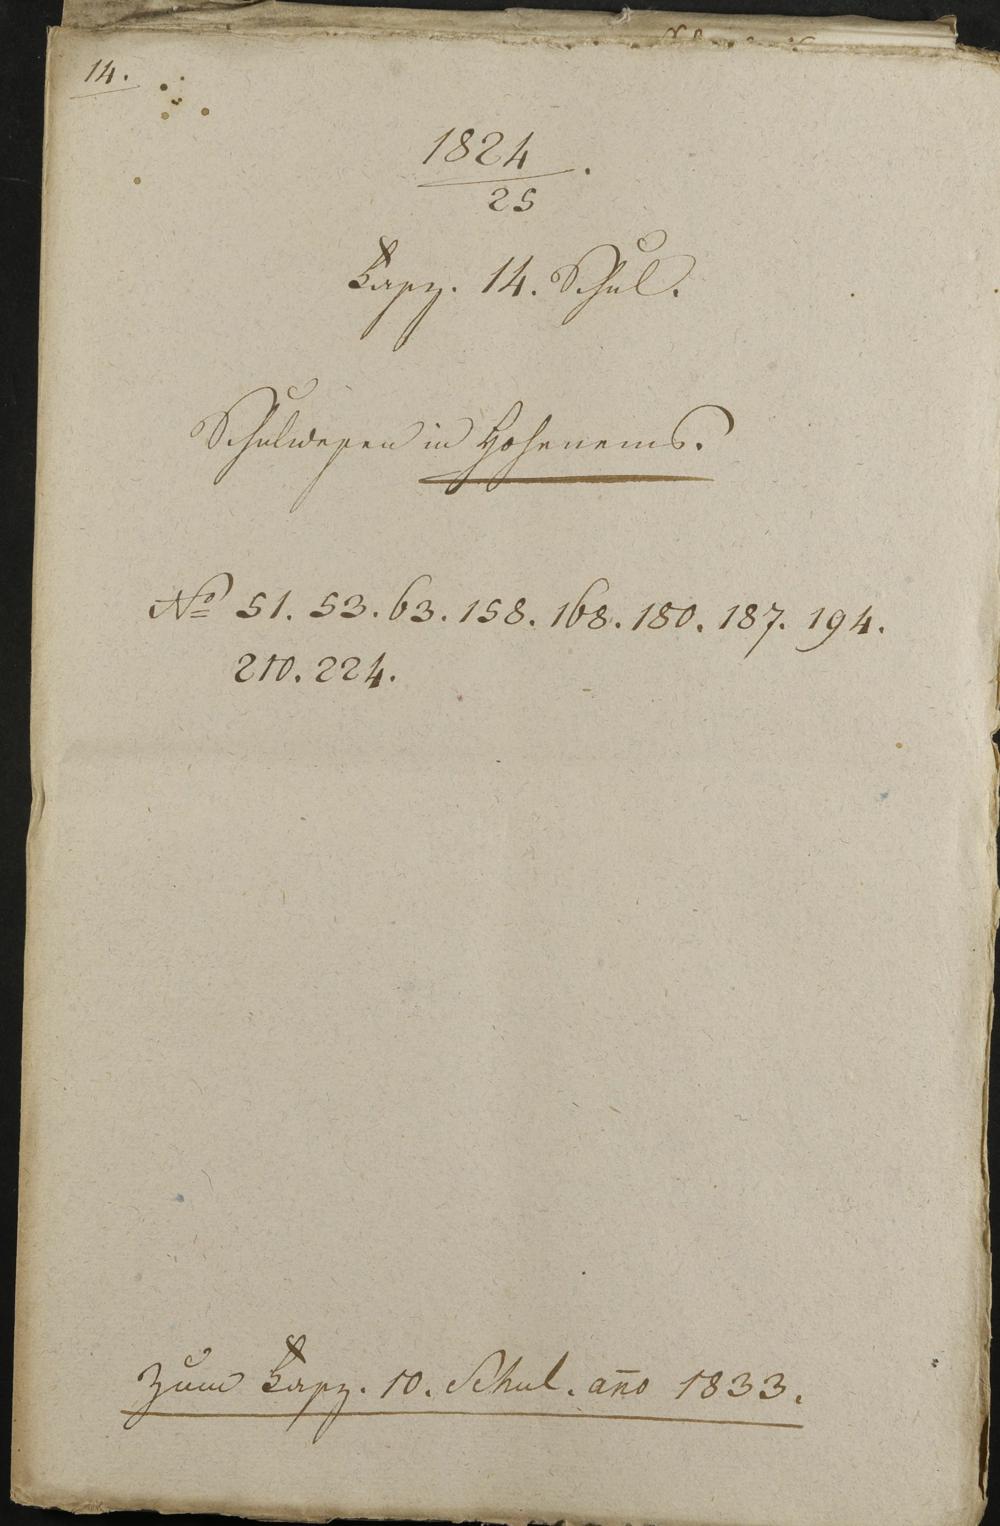 14.
1824
25.
Fasz. 14. Schul.
Schulwesen in Hohenems.
No 51. 53. 63. 158. 168. 180. 187. 194.
210. 224.
Zum Fasz. 10. Schul. año 1833.